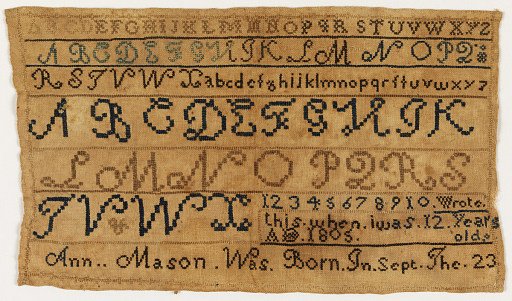 A B C D E F G H I J K L M N O P Q R S T U V W X Y Z
A B C D E F G H I K L M N O P Q
R S T V W X a b c d e f g h i j k l m n o p q r ſ t u v w x y z
A B C D E F G H I K
L M N O P Q R S
T V W X 1 2 3 4 5 6 7 8 9 10. Wrote.
this. when. i was. 12. Years
old. 1805.
Ann.. Mason. Was. Born. In. Sept. The. 23